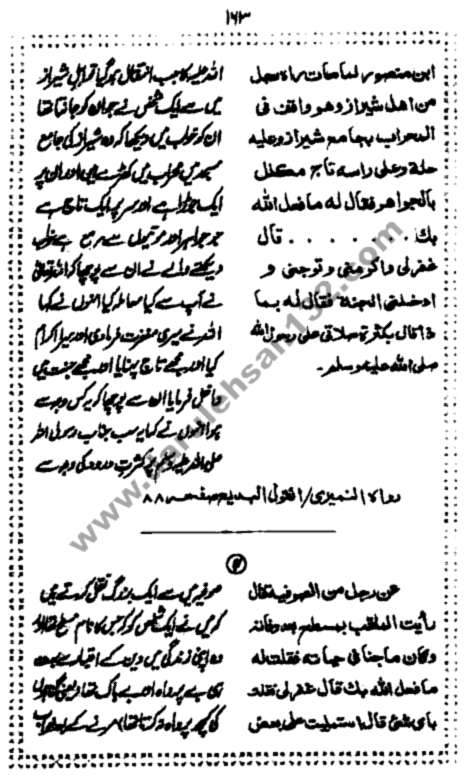 ۱۶۳
ابن منصور لما مات راہ رجل
من اھل شیراز وھو واقف فی
المحراب بجامع شیراز وعلیه
حلة وعلی راسه تاج مکلل
بالجواھر فقال له ما فعل الله
بك . . . . . . . . قال
غفرلی واکرمنی وتوجنی و
ادخلنی الجنة فقال له بما
ذا قال بکثرة صلاتی علی رسول الله
صلی الله علیه وسلم۔
اللہ علیہ کا جب انتقال ہو گیا تو اہل شیراز
میں سے ایک شخص نے جو ان کو جانتا تھا
ان کو خواب میں دیکھا کہ وہ شیراز کی جامع
مسجد میں محراب میں کھڑے ہیں اور ان پر
ایک جوڑا ہے اور سر پر ایک تاج ہے
جو جواہر اور موتیوں سے مرصع ہے خواب
دیکھنے والے نے ان سے پوچھا کہ اللہ تعالیٰ
نے آپ سے کیا معاملہ کیا انہوں نے کہا
اللہ نے میری مغفرت فرما دی اور میرا اکرام
کیا اور مجھے تاج پہنایا اور مجھے جنت میں
داخل فرمایا ان سے پوچھا کہ یہ کس وجہ سے
ہوا انہوں نے کہا یہ سب جناب رسول اللہ
صلی اللہ علیہ وسلم پر کثرت درود کی وجہ سے
رواہ النمیری/القول البدیع صفحہ ۸۸
عن رجل من الصوفیة قال
رأیت الملقب بمسطح بعد وفاته
وکان ماجنا فی حیاته فقلت له
ما فعل الله بك قال غفرلی فقلت
بای شیٔ قال استملیت علی بعض
صوفیہ میں سے ایک بزرگ نقل کرتے ہیں
کہ میں نے ایک شخص کو کہ جس کا نام مسطح تھا اور
وہ اپنی زندگی میں دین کے اعتبار سے بہت
ہی بے پرواہ اور بے باک تھا
کی کچھ پرواہ نہ کرتا تھا) مرنے کے بعد
www.darulehsan132.com